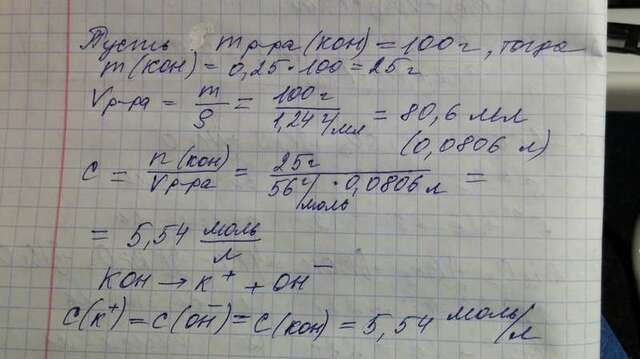 Пусть mр-ра(KOH) = 100г, тогда
m(KOH) = 0,25·100 = 25г
Vр-ра = m/ρ = 100г/1,24 г/мл = 80,6 мл
(0,0806 л)
c = n(KOH)/Vр-ра = 25г/56 г/моль · 0,0806 л =
= 5,54 моль/л
KOH → K⁺ + OH⁻
c(K⁺) = c(OH⁻) = c(KOH) = 5,54 моль/л